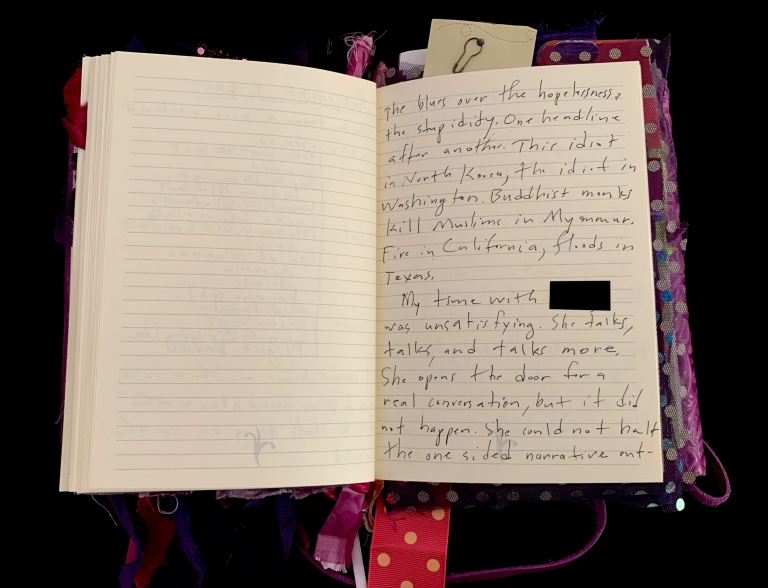 the blues over the hopelessness,
the stupidity. One headline
after another. This idiot
in North Korea, the idiot in
Washington. Buddhist monks
kill Muslims in Myanmar.
Fire in California, floods in
Texas.
My time with
was unsatisfying. She talks,
talks, and talks more.
She opens the door for a
real conversation, but it did
not happen. She could not halt
the one sided narrative out-